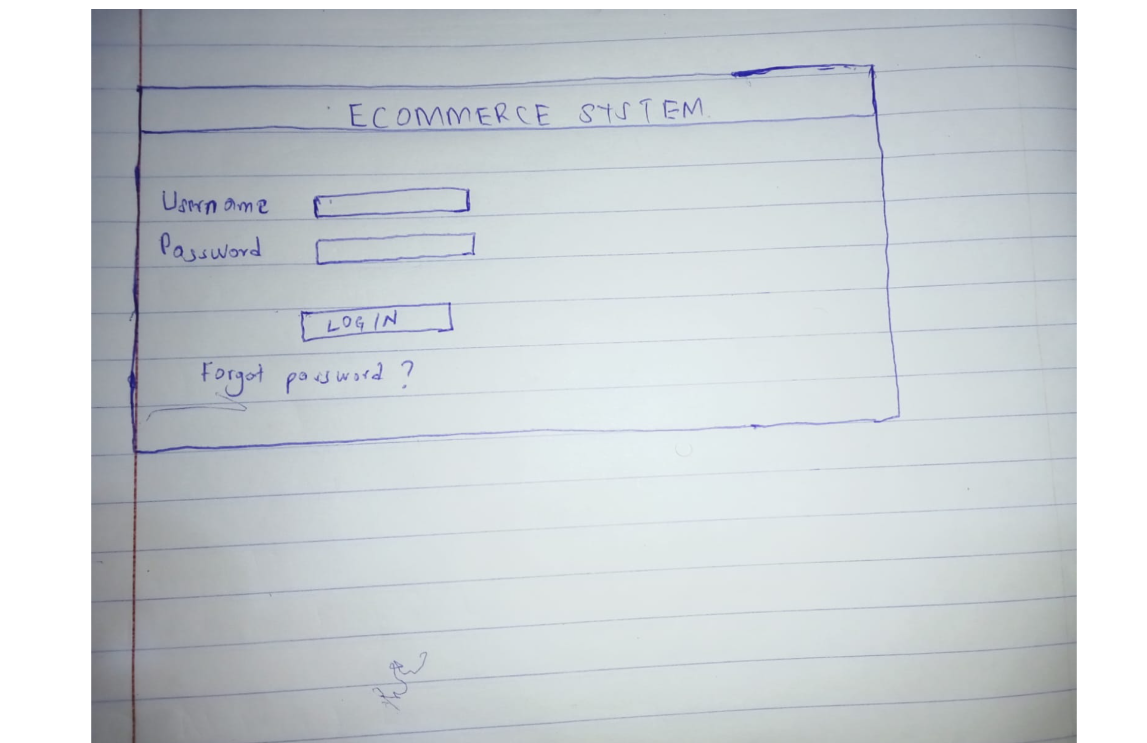 ECOMMERCE SYSTEM
Username
Password
LOGIN
Forgot password ?